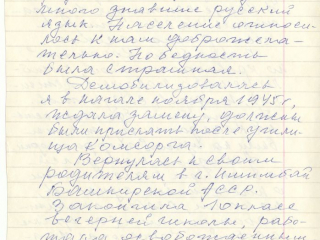 много знавшие русский
язык. Население относи-
лось к нам доброжела-
тельно. Но бедность
была страшная.
Демобилизовалась
я в начале ноября 1945г,
ждала замену, должны
были прислать после учили-
ща комсорга.
Вернулась к своим
родителям в г. Ишимбай
Башкирской АССР.
Закончила 10 класс
вечерней школы, рабо-
тала освобождённым